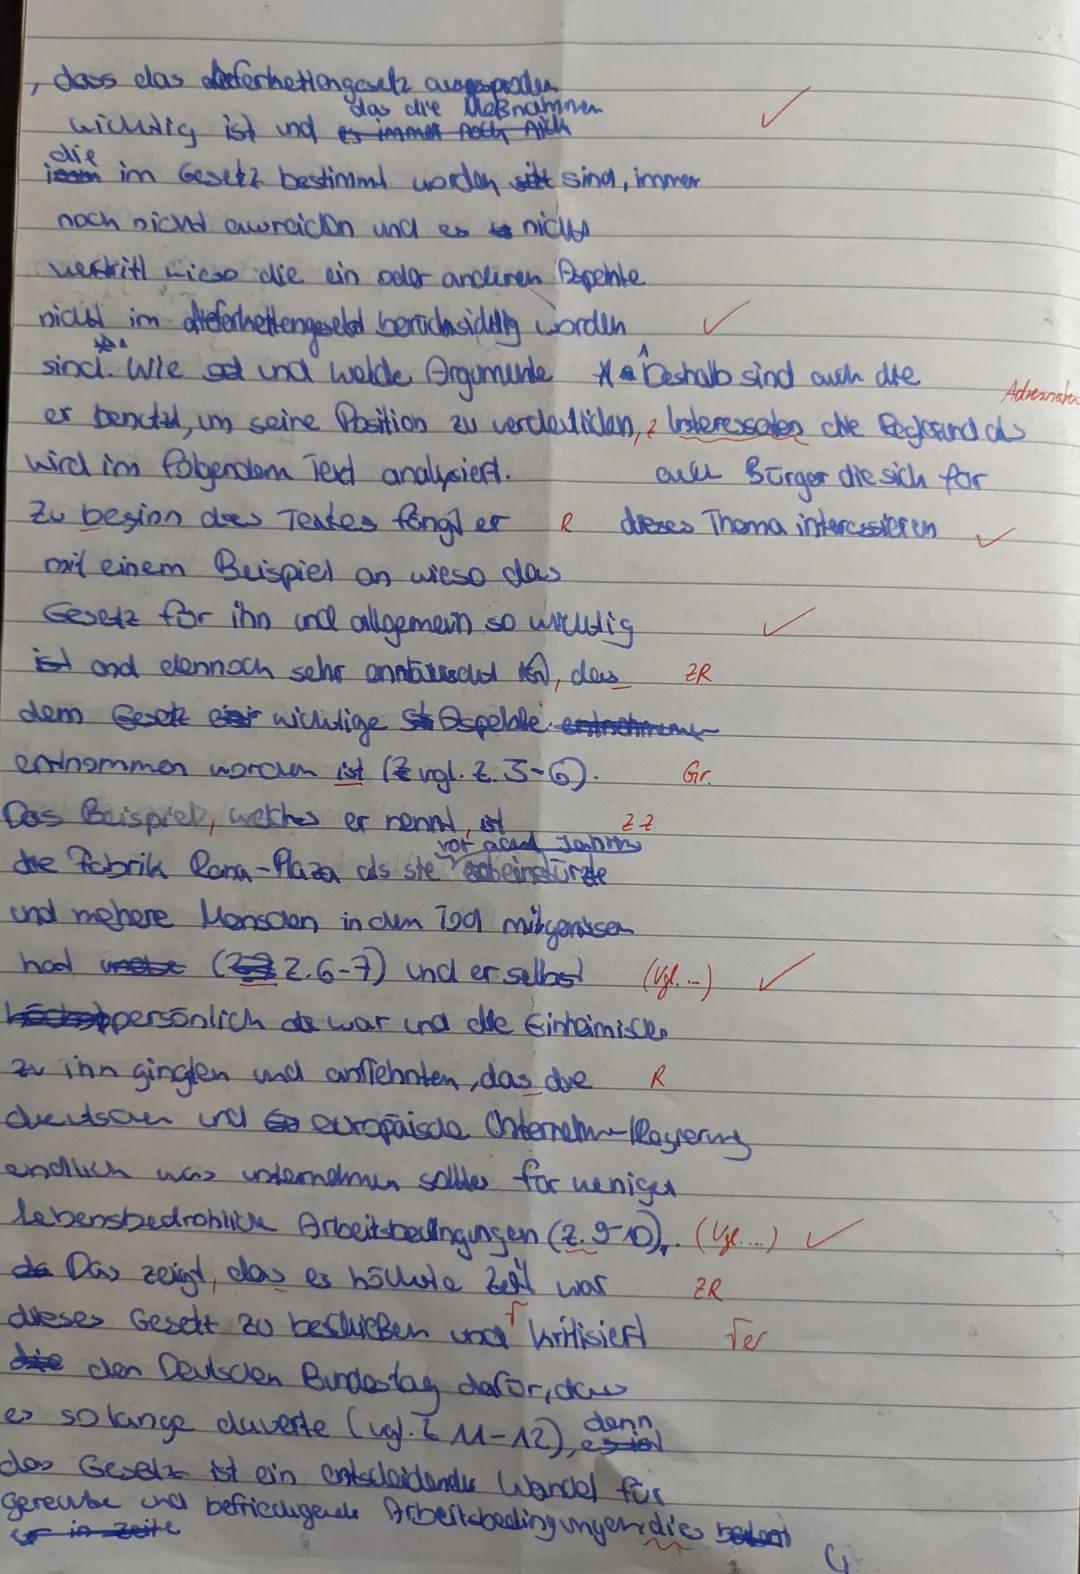 , dass das Lieferkettengesetz ausgesprochen
das die Maßnahmen
wichtig ist und es immer noch nicht
die
im Gesetz bestimmt worden sind, immer
noch nicht ausreichen und es nicht
vertritt wieso die ein oder anderen Aspekte
nicht im Lieferkettengesetz berücksichtig worden
sind. Wie und welche Argumente
Deshalb sind auch die
Adressaten
er benutzt, um seine Position zu verdeutlichen,
Interessaten die Regierund als
wird im folgendem Text analysiert.
auch Bürger die sich für
Zu beginn des Textes fängt er R
dieses Thema interessieren
mit einem Beispiel an wieso das
Gesetz für ihn und allgemein so wichtig
ist und dennoch sehr enntäuscht ist, das ZR
dem Gesetz wichtige Aspekte entnehmen
entnommen worden ist (vgl. Z. 5-6). Gr.
Das Beispiel, welches er nennt, ist ZZ
vor acht Jahren
die Fabrik Rana-Plaza als sie einstürzte
und mehere Menschen in den Tod mitgerissen
hat (Z. 6-7) und er selbst (Vgl. ...)
persönlich da war und die Einheimischen
zu ihn gingten und anflehnten, das die R
deutschen und europäische Unternehm-/Regierung
endlich was unternehmen sollte für weniger
lebensbedrohliche Arbeitsbedingungen (Z. 9-10). (Vgl. ...)
Das zeigt, das es höchste Zeit war ZR
dieses Gesetz zu beschließen und kritisiert Γer
die den Deutschen Bundestag dafür, das
es so lange dauerte (vgl. Z 11-12), denn
es ist
das Gesetz ist ein entscheidender Wandel für
gerechte und befriedigende Arbeitsbedingungen dies bedeut
in Zeile